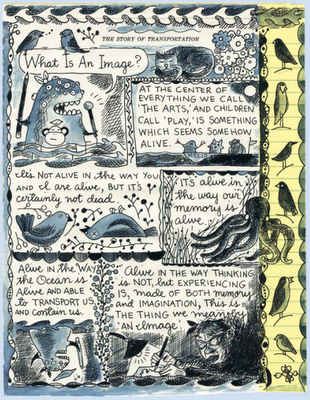 THE STORY OF TRANSPORTATION
What Is An Image?
AT THE CENTER OF
EVERYTHING WE CALL
'THE ARTS,' AND CHILDREN
CALL 'PLAY,' IS SOMETHING
WHICH SEEMS SOMEHOW
ALIVE.
It's NOT ALIVE in the WAY YOU
AND I are alive, BUT IT'S
certainly not dead.
IT'S alive in
the way our
memory is
alive.
Alive in the Way
the Ocean is
Alive AND ABLE
to TRANSPORT US
AND Contain us.
Alive IN THE WAY THINKING
is NOT, but EXPERIENCING
IS, made of BOTH memory
and IMAGINATION, This is
THE THING we mean by
'AN Image.'